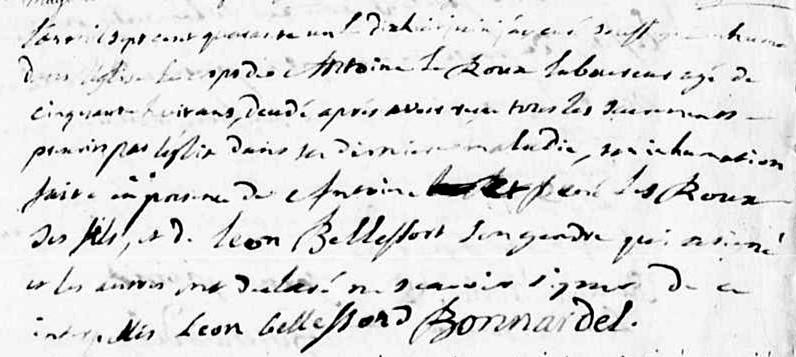 L'an mil sept cent quarante un le dix huit juin j'ay curé soussigné inhumé
dans l'église le corps de Antoine Le Roux laboureur agé de
cinquante huit ans, decedé apres avoir reçu tous les sacrements
par l'eglise dans sa derniere maladie, son inhumation
faite en presence de Antoine et les Roux
ses fils, et de Leon Bellessort son gendre qui a signé
et les autres ont declaré ne scavoir signer de ce
interpellés Leon bellessord Bonnardel.